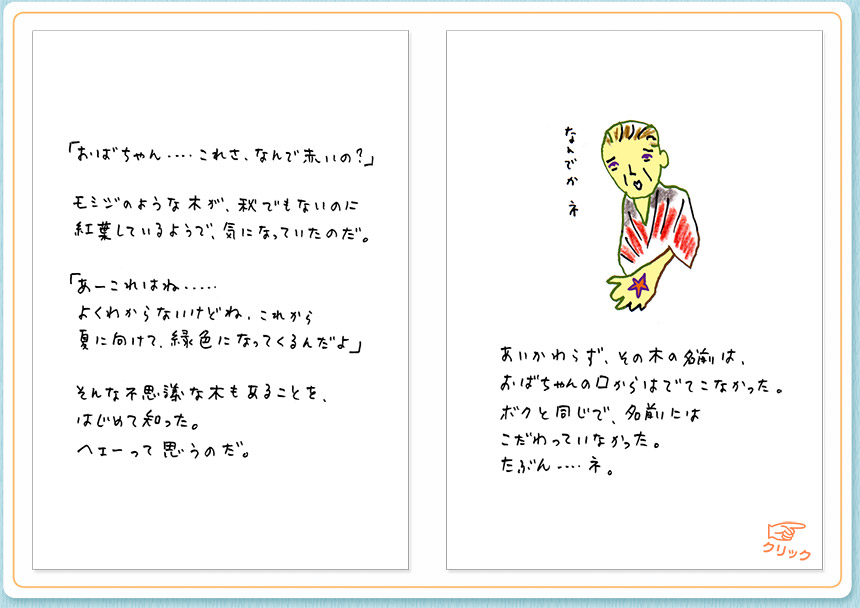 「おばちゃん‥‥これさ、なんで赤いの？」
モミジのような木が、秋でもないのに
紅葉しているようで、気になっていたのだ。
「あーこれはね‥‥‥
よくわからないけどね、これから
夏に向けて、緑色になってくるんだよ」
そんな不思議な木もあることを、
はじめて知った。
ヘェーって思うのだ。
なんでか ネ
あいかわらず、その木の名前は、
おばちゃんの口からはでてこなかった。
ボクと同じで、名前には
こだわっていなかった。
たぶん‥‥ネ。
クリック